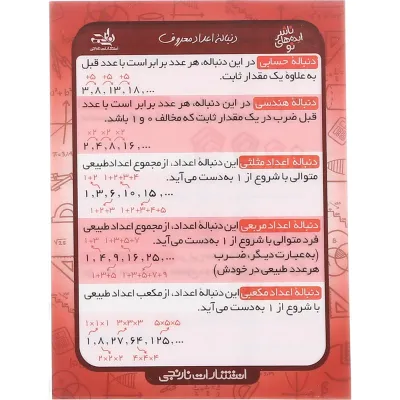 ناشر
ایده‌های
نو
دنبالهٔ اعداد معروف
انتشارات نارنجی
دنبالهٔ حسابی در این دنباله، هر عدد برابر است با عدد قبل
به علاوهٔ یک مقدار ثابت.
+۵ +۵ +۵
3,8,13,18,...
دنبالهٔ هندسی در این دنباله، هر عدد برابر است با عدد
قبل ضرب در یک مقدار ثابت که مخالف ۰ و ۱ باشد.
×۲ ×۲ ×۲
2,4,8,16,...
دنبالهٔ اعداد مثلثی این دنبالهٔ اعداد، از مجموع اعداد طبیعی
متوالی با شروع از ۱ به‌دست می‌آید.
1+۲ 1+۲+۳+۴
1,3,6,10,15,...
1+۲+۳ 1+۲+۳+۴+۵
دنبالهٔ اعداد مربعی این دنبالهٔ اعداد، از مجموع اعداد طبیعی
فرد متوالی با شروع از ۱ به‌دست می‌آید.
1+۳ 1+۳+۵+۷
(به‌عبارت دیگر، ضرب
1,4,9,16,25,...
هر عدد طبیعی در خودش)
1+۳+۵ 1+۳+۵+۷+۹
دنبالهٔ اعداد مکعبی این دنبالهٔ اعداد، از مکعب اعداد طبیعی
با شروع از ۱ به‌دست می‌آید.
1×1×1 ۳×۳×۳ ۵×۵×۵
1,8,27,64,125,...
۲×۲×۲ ۴×۴×۴
انتشارات نارنجی